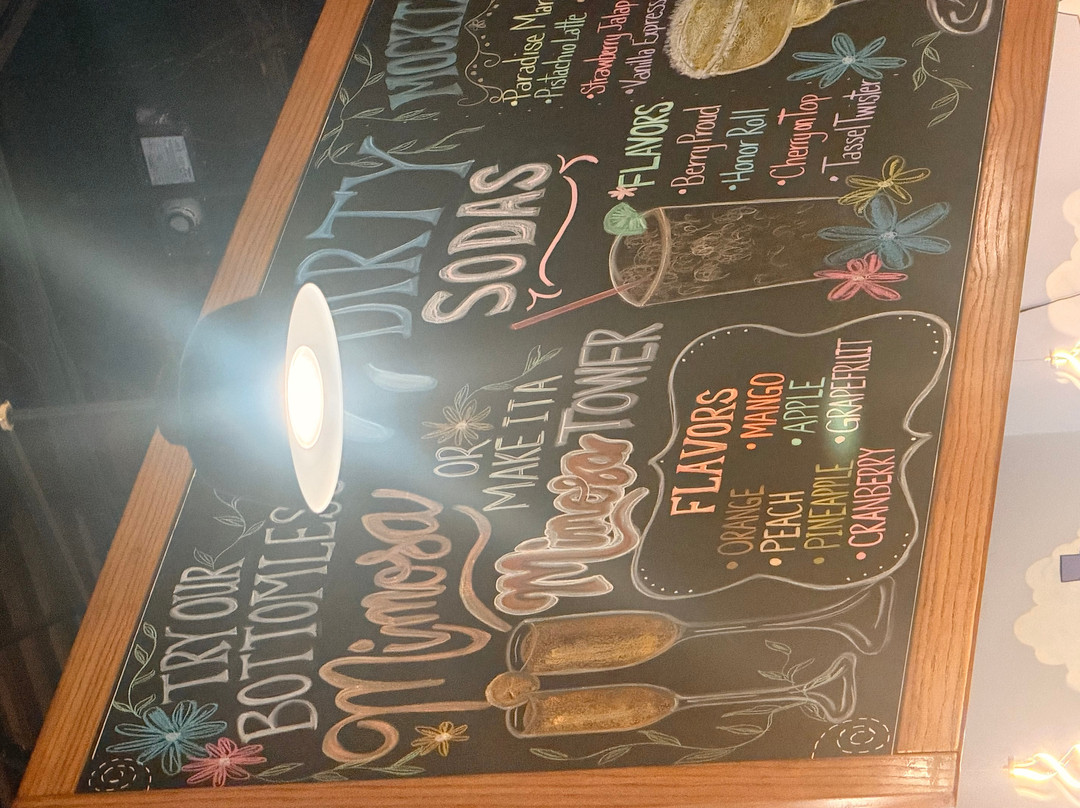 TRY OUR
BOTTOMLESS
Mimosa
OR
MAKE IT A
Mimosa TOWER
FLAVORS
• ORANGE • MANGO
• PEACH • APPLE
• PINEAPPLE • GRAPEFRUIT
• CRANBERRY
DIRTY
SODAS
*FLAVORS
• Berry Proud
• Honor Roll
• Cherry on Top
• Tassel Twister
• Paradise
• Pistachio Latte
• Strawberry
• Vanilla